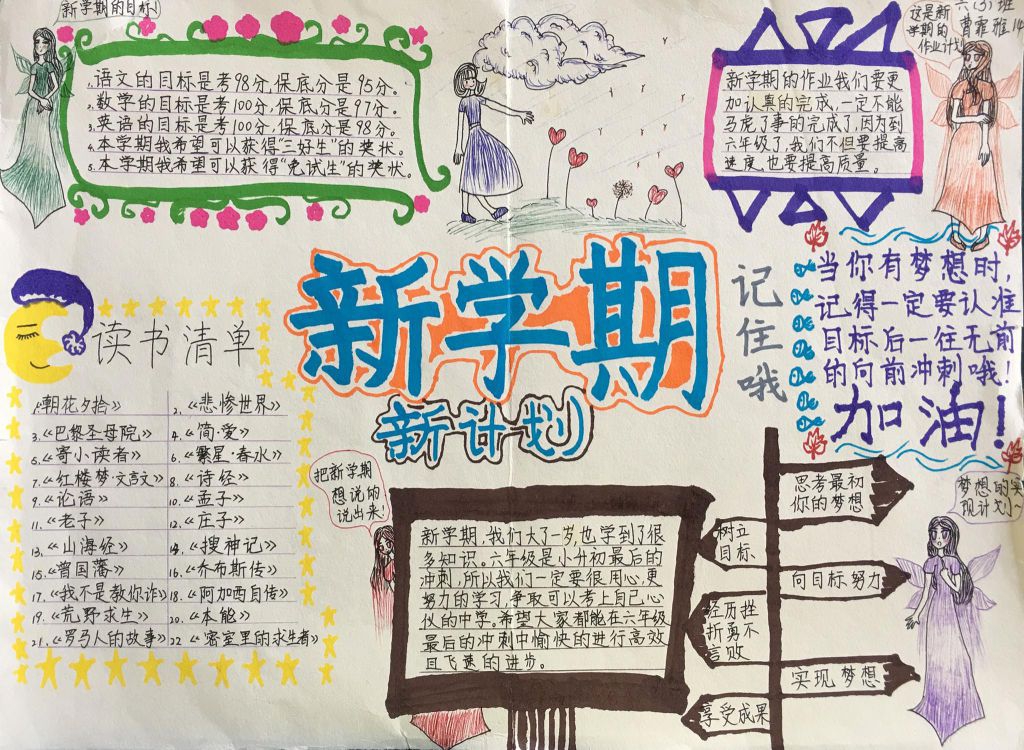 新学期的目标!
1.语文的目标是考98分,保底分是95分。
2.数学的目标是考100分,保底分是97分。
3.英语的目标是考100分,保底分是98分。
4.本学期我希望可以获得“三好生”的奖状。
5.本学期我希望可以获得“免试生”的奖状。
六(3)班
曹霏雅14
这是新
学期的
作业计划
新学期的作业我们要更
加认真的完成,一定不能
马虎了事的完成了,因为到
六年级了,我们不但要提高
速度,也要提高质量。
新学期
新计划
记住哦
当你有梦想时,
记得一定要认准
目标后一往无前
的向前冲刺哦!
加油!
读书清单
1.《朝花夕拾》 2.《悲惨世界》
3.《巴黎圣母院》 4.《简·爱》
5.《寄小读者》 6.《繁星·春水》
7.《红楼梦·文言文》 8.《诗经》
9.《论语》 10.《孟子》
11.《老子》 12.《庄子》
13.《山海经》 14.《搜神记》
15.《曾国藩》 16.《乔布斯传》
17.《我不是教你诈》 18.《阿加西自传》
19.《荒野求生》 20.《本能》
21.《罗马人的故事》 22.《密室里的求生者》
把新学期
想说的
说出来!
新学期,我们大了一岁,也学到了很
多知识。六年级是小升初最后的
冲刺,所以我们一定要很用心,更
努力的学习,争取可以考上自己心
仪的中学。希望大家都能在六年级
最后的冲刺中愉快的进行高效
且飞速的进步。
梦想的实
现计划~
思考最初
你的梦想
树立
目标
向目标努力
经历挫
折勇不
言败
实现梦想
享受成果